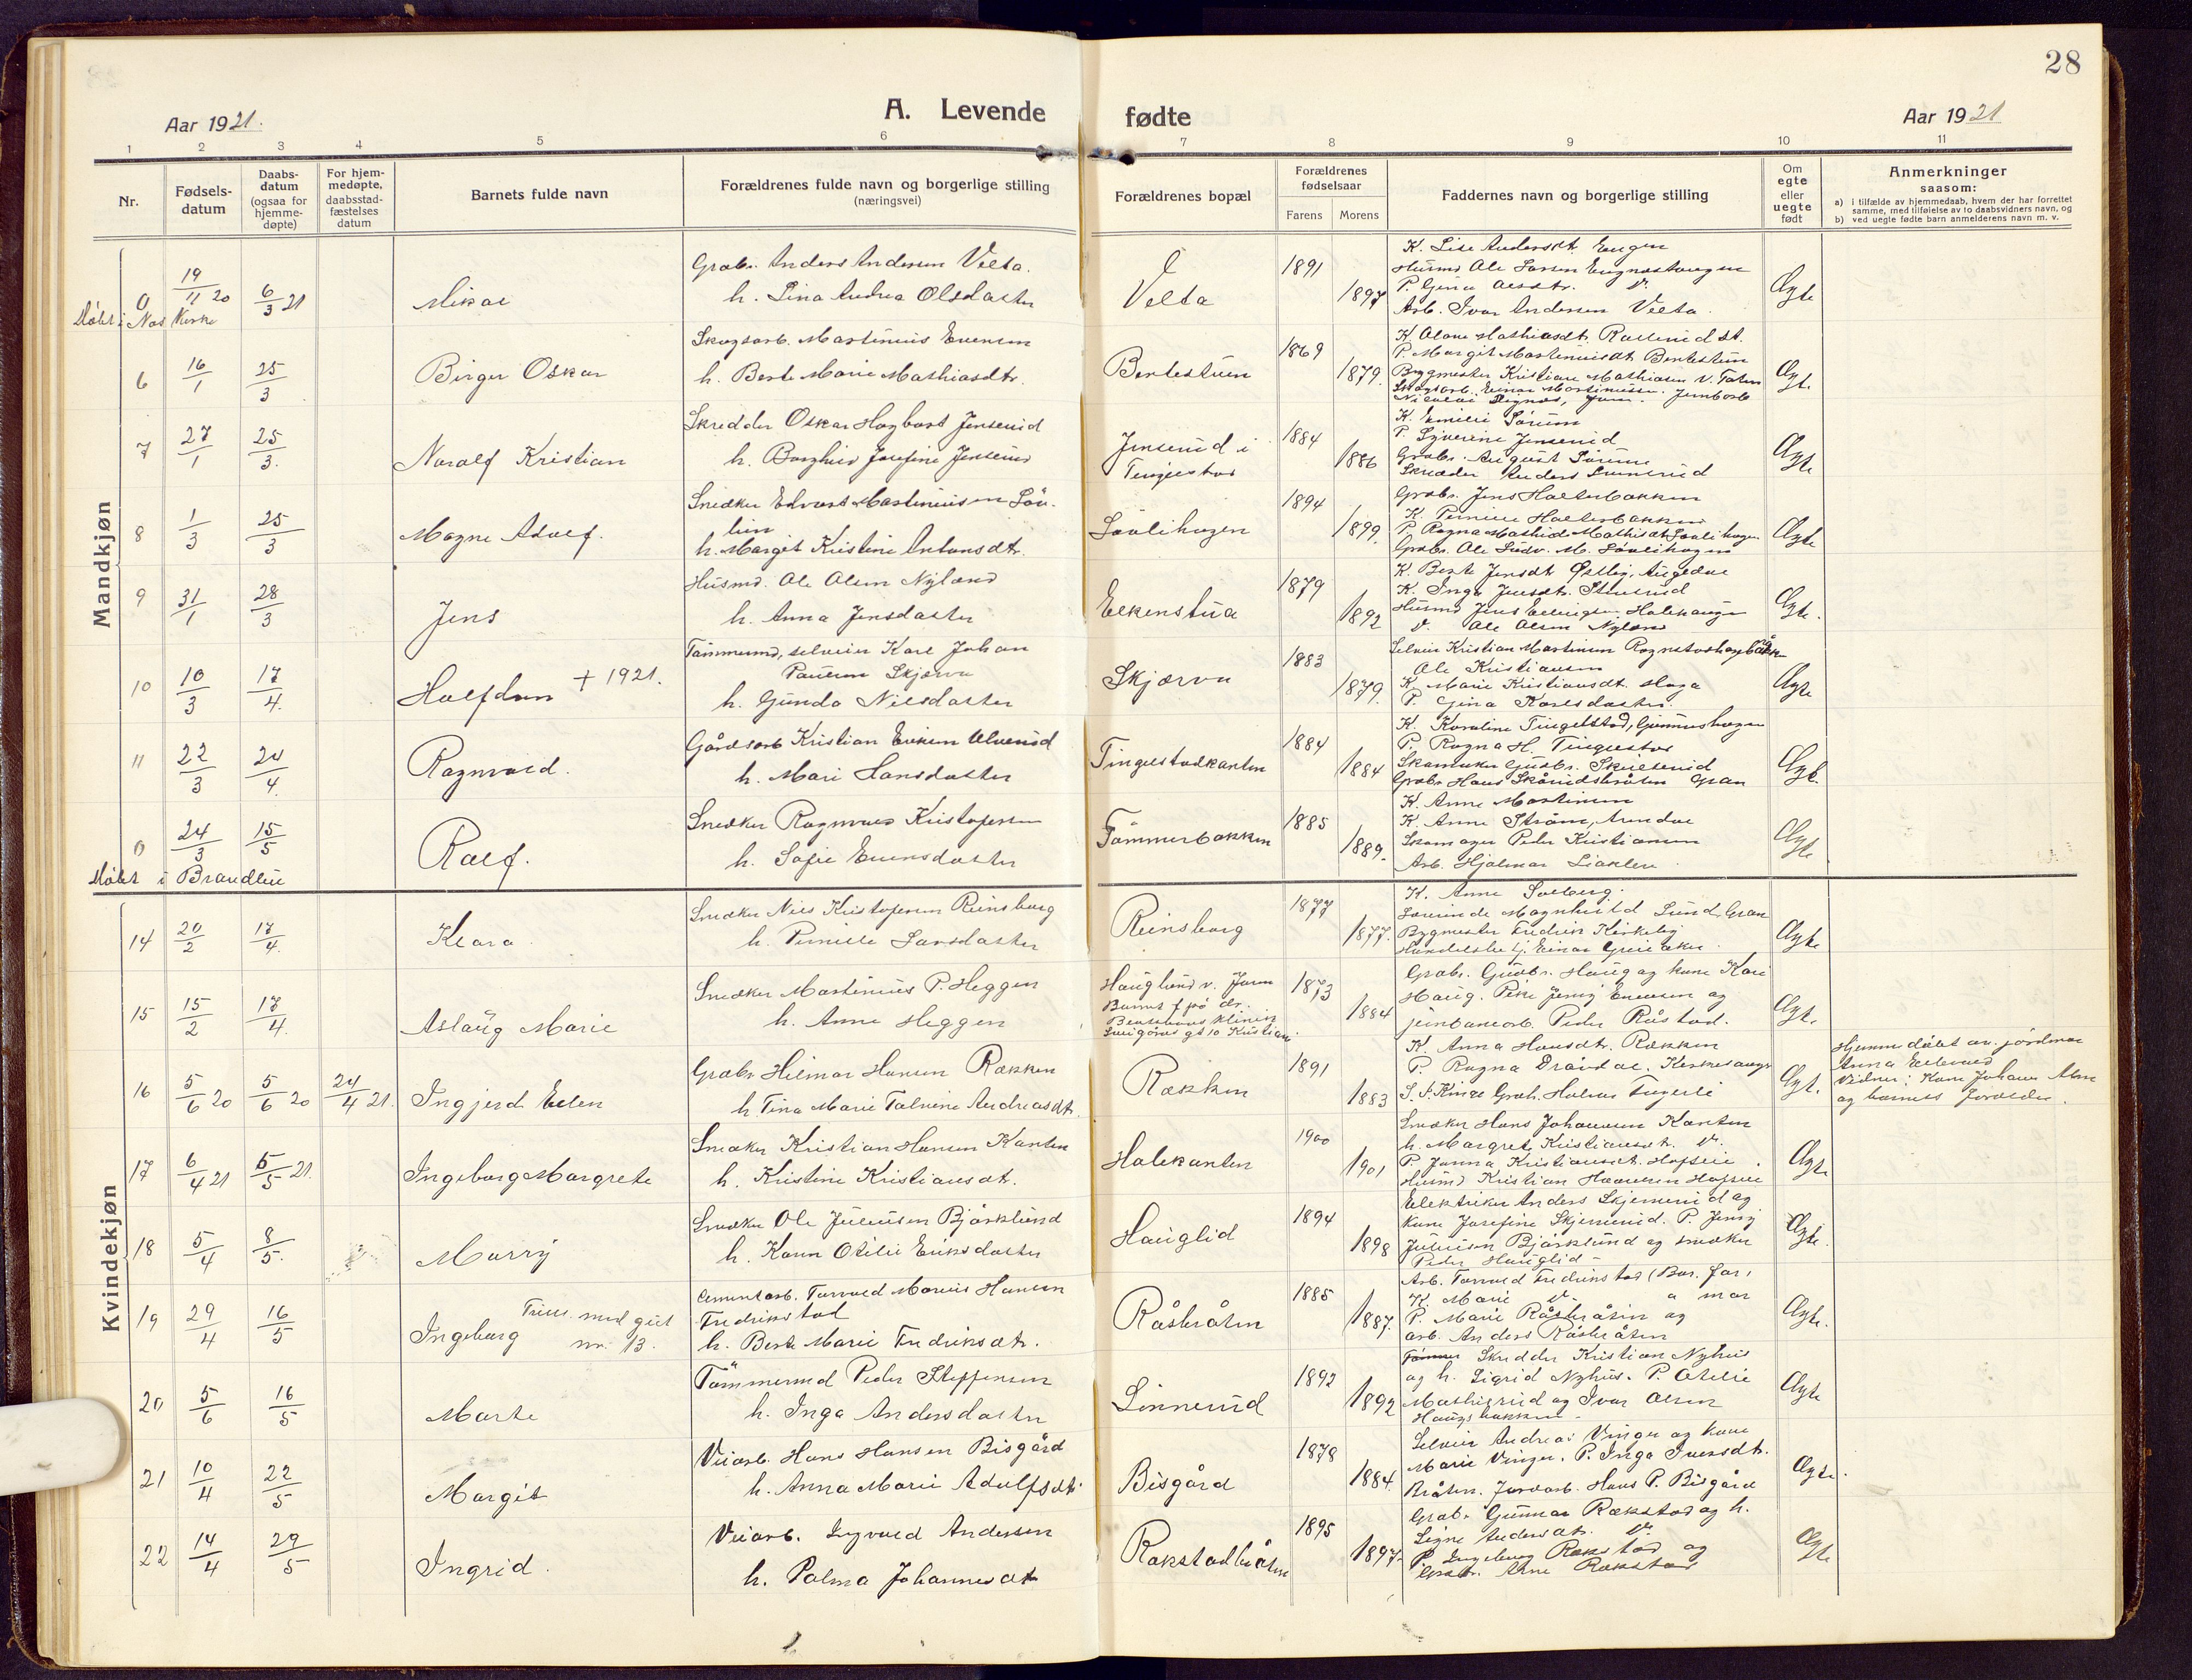 28
Aar 1921.
A. Levende
fødte
Aar 1921
1 2 3 4 5 6 7 8 9 10 11
Nr.
Fødsels-
datum
Daabs-
datum
(ogsaa for
hjemme-
døpte)
For hjem-
medøpte,
daabsstad-
fæstelses
datum
Barnets fulde navn
Forældrenes fulde navn og borgerlige stilling
(næringsvei)
Forældrenes bopæl
Forældrenes
fødselsaar
Farens Morens
Faddernes navn og borgerlige stilling
Om
egte
eller
uegte
født
Anmerkninger
saasom:
a) i tilfælde av hjemmedaab, hvem der har forrettet
samme, med tilføielse av to daabsvidners navn, og
b) ved uegte fødte barn anmelderens navn m. v.
Mandkjøn
0 19/11 20 6/3 21
Døbt i Nes Kirke
Mikal
Grabr. Anders Andersen Velta.
h. Lina Andrea Olsdatter
Velta
1891
1897
K. Lise Andersdt. Engen
Husmd Ole Larsen Engnæshaugen
Arb. Ivar Andersen Velta.
Ægte
6 16/1 25/3
Birger Oskar
Skogsarb. Martinius Evensen
h. Berte Marie Mathiasdtr.
Bertestuen
1869
1879.
K. Olave Mathiasdt.
P. Margit Martiniusdt. Bertestuen
Bygmester Kristian Mathiasen
Ægte
7 27/1 25/3.
Noralf Kristian
Skredder Oskar Hagbart Jenserud
h. Borghild Josefine Jenserud
Jenserud i
Tingelstad
1884
1886
K. Emilie Sørum
P. Syverine Jenserud
Grabr. August Sørum
Skrædder Anders Linnerud
Ægte
8 1/3 25/3
Magne Adolf.
Snedker Edvart Martiniussen Søv-
lien
h. Margit Kristine Antonsdtr.
Søvlihagen
1894
1899.
Grabr. Jens Halterbakken
K. Pernille Halterbakken
P. Ragna Mathilde Mathisdt. Søvlihagen
Grabr. Ole Ludv. M. Søvlihagen
Ægte
9 31/1 28/3
Jens
Husmd. Ole Olsen Nyland
h. Anna Jensdatter
Elkenstua
1879
1892
K. Berte Jensdt. Østby, Augedal
K. Inga Jensdt. Stenerud
Husmd Jens Ellingsen Halehaugen
Ole Olsen Nyland
Ægte.
10 10/3 17/4.
Halfdan + 1921.
Tømmermd, selveier Karl Johan
Paulsen Skjærva
h. Gunda Nilsdatter
Skjærva
1883
1879.
Selveier Kristian Martinsen
Ole Kristiansen
K. Marie Kristiansdt. Haga
P. Gina Karlsdatter.
Ægte
11 22/3 24/4.
Ragnvald.
Gårdsarb Kristian Eriksen Ulverud
h. Mari Hansdatter
Tingelstadkanten
1884
1884
K. Karoline Tingelstad, Gunnushagen
P. Ragna H. Tingelstad
Skomaker Gudbr. Skiellerud
Grabr Hans Skårudsbråten Gran
Ægt.
0 24/3 15/5
Døbt i Brandbu
Ralf.
Snedker Ragnvald Kristofersen
h. Sofie Evensdatter
Tømmerbakken
1885
1889.
K. Anne Martinsen
K. Anne Strøm, Arendal
Skomager Peder Kristiansen
Arb. Hjalmar Lieklev
Ægte
Kvindekjøn
14 20/2 17/4.
Klara
Snedker Nils Kristofersen Reinsborg
h. Pernille Larsdatter
Reinsborg
1877
1877.
K. Anne Solberg.
Lærerinde Magnhild Lund, Gran
Bygmester Fredrik Kirkeby
Handelsbetj. Einar Grinaker
Ægte
15 15/2 17/4.
Aslaug Marie
Snedker Martinius P. Heggen
h. Anne Heggen
Hauglund v. Jaren
Barnet f. på dr.
1873
1884
Grabr. Gudbr. Haug og kone Kari
Haug. Pike Jenny Evensen og
jernbanearb. Peder Råstad.
Ægt.
16 5/6 20 5/6 20 24/4 21.
Ingjerd Ellen
Grabr Hilmar Hansen Rækken
h. Tina Marie Talvine Andreasdt.
Rækken
1891
1883
K. Anna Hansdtr. Rækken
P. Ragna Drøvdal, Kirkesaugen
Ægt.
Hjemmedøbt av jordmor
Anna Ellerud
Vidner: Kone Johanne Alm
og barnets forældre.
17 6/4 21 5/5 21.
Ingeborg Margrete
Snedker Kristian Hansen Kanten
h. Kristine Kristiansdt.
Halekanten
1900
1901
Snedker Hans Johansen Kanten
h. Margrete Kristiansdt.
P. Janna Kristiansdt. Hofslie
Husmd Kristian Haavelsen Hofslie
Ægte
18 5/4 8/5.
Marry
Snedker Ole Juliussen Bjørklund
h. Karen Otilie Eriksdatter
Hauglid
1894
1898
Elektriker Anders Skjennerud og
kone Josefine Skjennerud. P. Jenny
Juliussen Bjørklund og snedker
Peder Hauglid
Ægte.
19 29/4 16/5
Ingeborg Trill. med gut
nr. 13.
Cementarb. Torvald Marius Hansen
Fredrikstad
h. Berte Marie Fredriksdt.
Råsbråten
1885
1887.
Arb. Torvald Fredrikstad (Bar. far,
K. Marie mor
P. Marie Råsbråten og
arb. Anders Råsbråten
Ægte.
20 5/6 16/5
Marte
Tømmermd Peder Steffensen
h. Inga Andersdatter
Linnerud
1892
1892
Skredder Kristian Nyhus
og h. Sigrid Nyhus. P. Otilie
Mathisrud og Ivar Olsen
Haugsbakken
Ægte
21 10/4 22/5
Margit
Veiarb. Hans Hansen Bisgård
h. Anna Marie Adolfsdt.
Bisgård
1878
1884.
Selveier Andreas Vinger og kone
Marie Vinger. P. Inga Iversdt.
Bråten. Jordarb. Hans P. Bisgård
Ægte.
22 14/4 29/5
Ingrid.
Veiarb. Ingvald Andersen
h. Palma Johannesdt
Rækstadbråten
1895
1897.
Grabr Gunnar Rækstad og h.
Signe Andersdt.
P. Ingeborg Rækstad og
Grabr. Arne Rækstad
Ægte